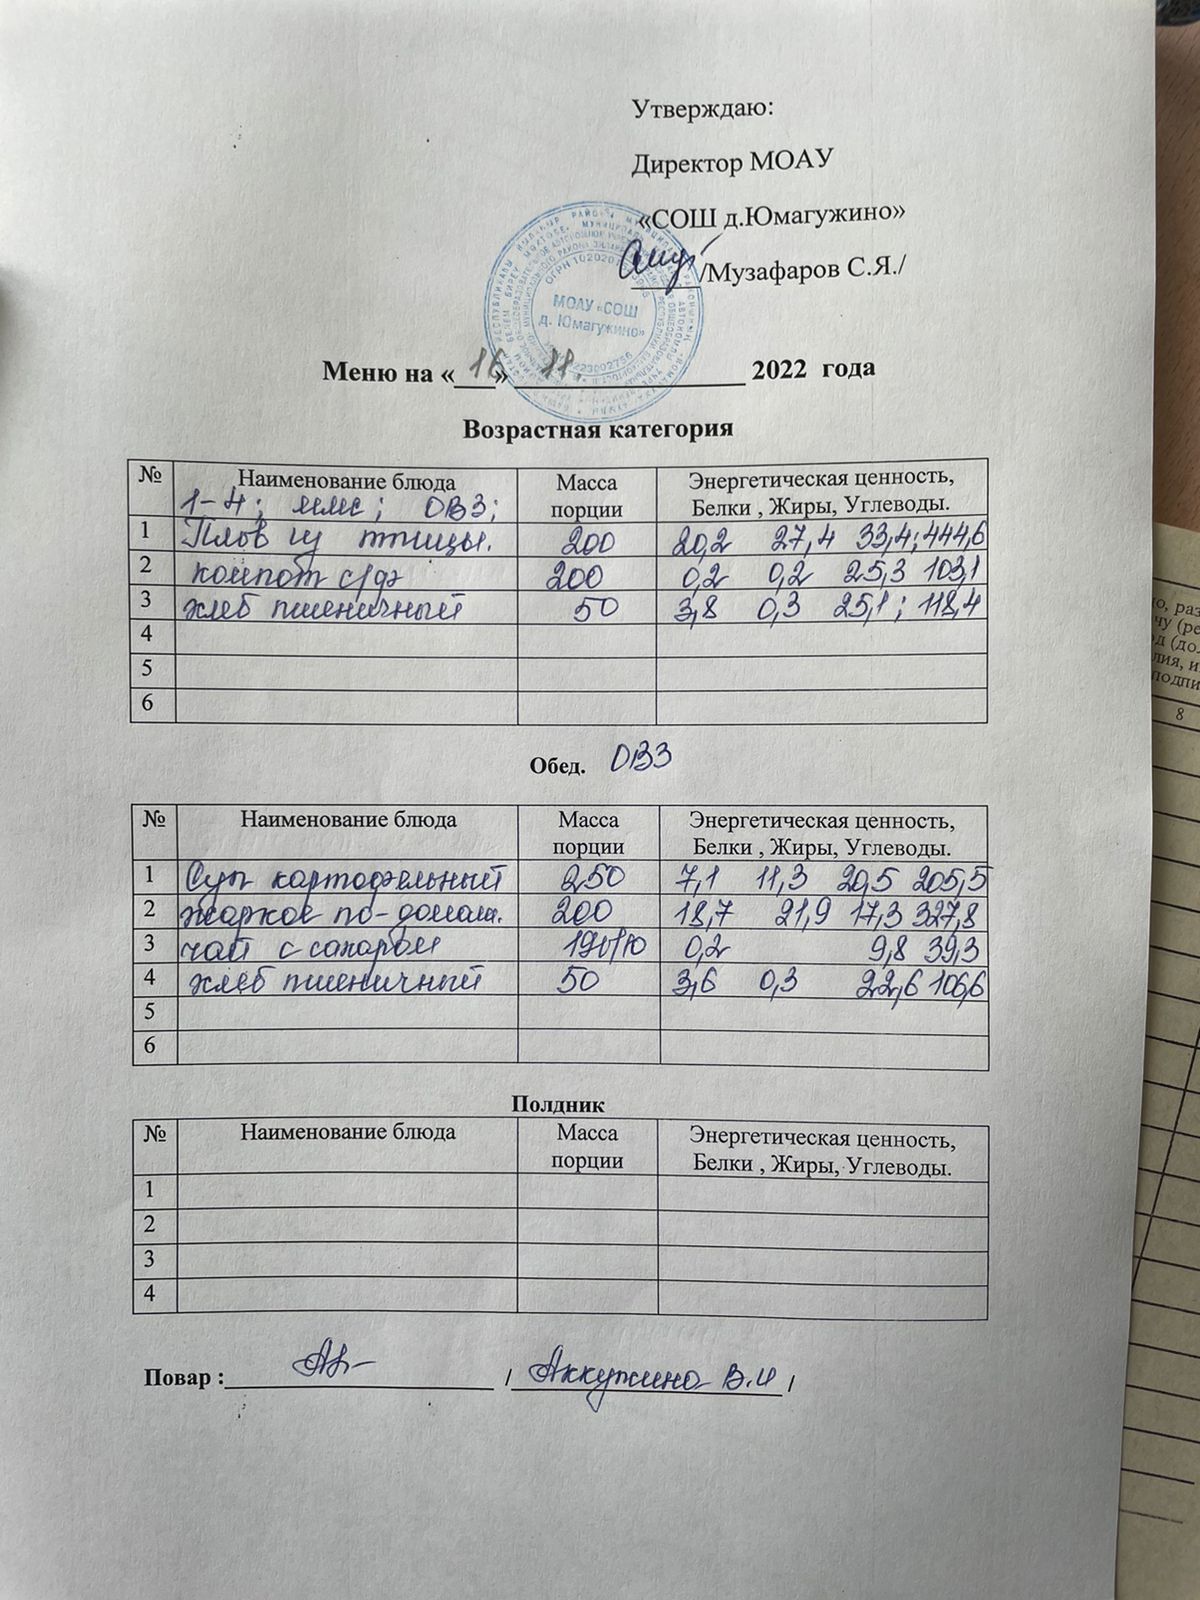 Утверждаю:
Директор МОАУ
«СОШ д.Юмагужино»
/Музафаров С.Я./
МОАУ «СОШ
д. Юмагужино»
Меню на «16» 11. 2022 года
Возрастная категория
№ Наименование блюда Масса порции Энергетическая ценность, Белки , Жиры, Углеводы.
1-4; ммс; ОВЗ;
1 Плов из птицы. 200 20,2 27,4 33,4; 444,6
2 компот с/ф 200 0,2 0,2 25,3 103,1
3 хлеб пшеничный 50 3,8 0,3 25,1; 118,4
4
5
6
Обед. ОВЗ
№ Наименование блюда Масса порции Энергетическая ценность, Белки , Жиры, Углеводы.
1 Суп картофельный 250 7,1 11,3 20,5 205,5
2 жаркое по-домаш. 200 18,7 21,9 17,3 327,8
3 чай с сахаром 190/10 0,2 9,8 39,3
4 хлеб пшеничный 50 3,6 0,3 22,6 106,6
5
6
Полдник
№ Наименование блюда Масса порции Энергетическая ценность, Белки , Жиры, Углеводы.
1
2
3
4
Повар : / Аккужина В.И /
8